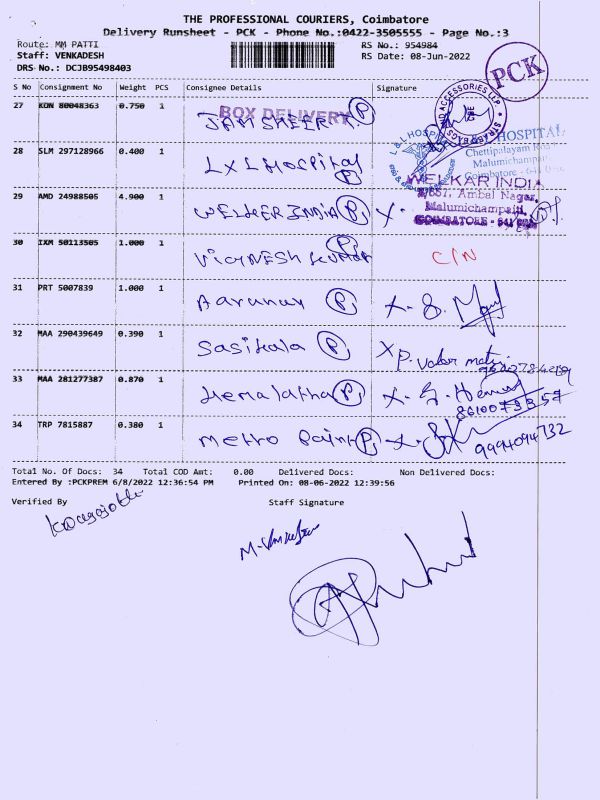 THE PROFESSIONAL COURIERS, Coimbatore
Delivery Runsheet - PCK - Phone No.:0422-3505555 - Page No.:3
Route: MM PATTI
RS No.: 954984
Staff: VENKADESH
RS Date: 08-Jun-2022
DRS No.: DCJB95498403
PCK
S No Consignment No Weight PCS Consignee Details Signature
27 KDN 80048363 0.750 1 BOX DELIVERY
28 SLM 297128966 0.400 1 LXL HOSPITAL P
L & L HOSPITAL
Chettipalayam
Malumichampatti
Coimbatore - 641
29 AMD 24988505 4.900 1 WELKER INDIA P X
WELKAR INDIA
Ambal Nagar,
Malumichampatti,
COIMBATORE - 641
30 IXM 50113505 1.000 1 VIGNESH KUMAR P C/N
31 PRT 5007839 1.000 1 Aarunav P X
32 MAA 290439649 0.390 1 Sasikala P X P.
33 MAA 281277387 0.870 1 Hemalatha P X
34 TRP 7815887 0.380 1 Metro Paint P X 9994094732
Total No. Of Docs: 34 Total COD Amt: 0.00 Delivered Docs: Non Delivered Docs:
Entered By :PCKPREM 6/8/2022 12:36:54 PM Printed On: 08-06-2022 12:39:56
Verified By Staff Signature